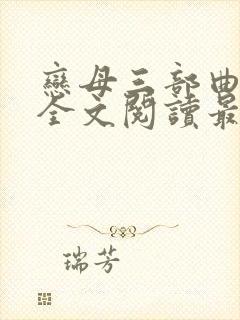 戀母三部曲
全文閱讀最
瑞芳